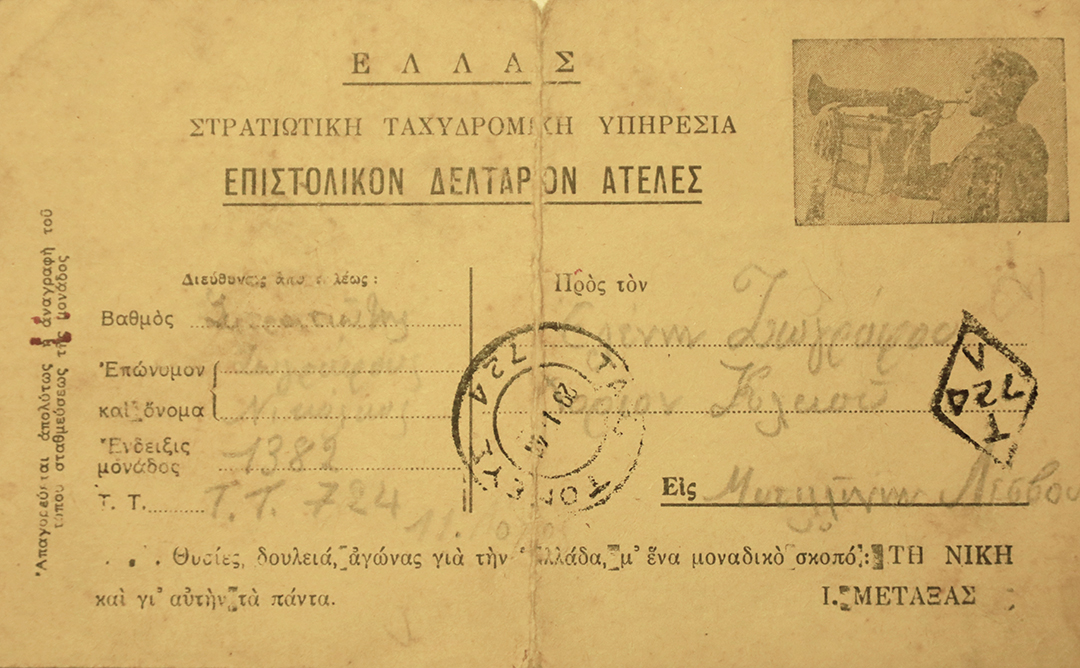 ΕΛΛΑΣ
ΣΤΡΑΤΙΩΤΙΚΗ ΤΑΧΥΔΡΟΜΙΚΗ ΥΠΗΡΕΣΙΑ
ΕΠΙΣΤΟΛΙΚΟΝ ΔΕΛΤΑΡΙΟΝ ΑΤΕΛΕΣ
Ἀπαγορεύεται ἀπολύτως ἡ ἀναγραφὴ τοῦ
τόπου σταθμεύσεως τῆς μονάδος
Διεύθυνσις ἀποστολέως :
Βαθμός Στρατιώτης
Ἐπώνυμον
καὶ ὄνομα Νικόλαος
Ἔνδειξις
μονάδος 1382
Τ. Τ. Τ.Τ. 724
Πρὸς τὸν
Εἰς Μυτιλήνην Λέσβου
724
Τ 724
Θυσίες, δουλειά, ἀγώνας γιὰ τὴν Ἑλλάδα, μ' ἕνα μοναδικὸ σκοπό: ΤΗ ΝΙΚΗ
καὶ γι' αὐτὴν τὰ πάντα. Ι. ΜΕΤΑΞΑΣ